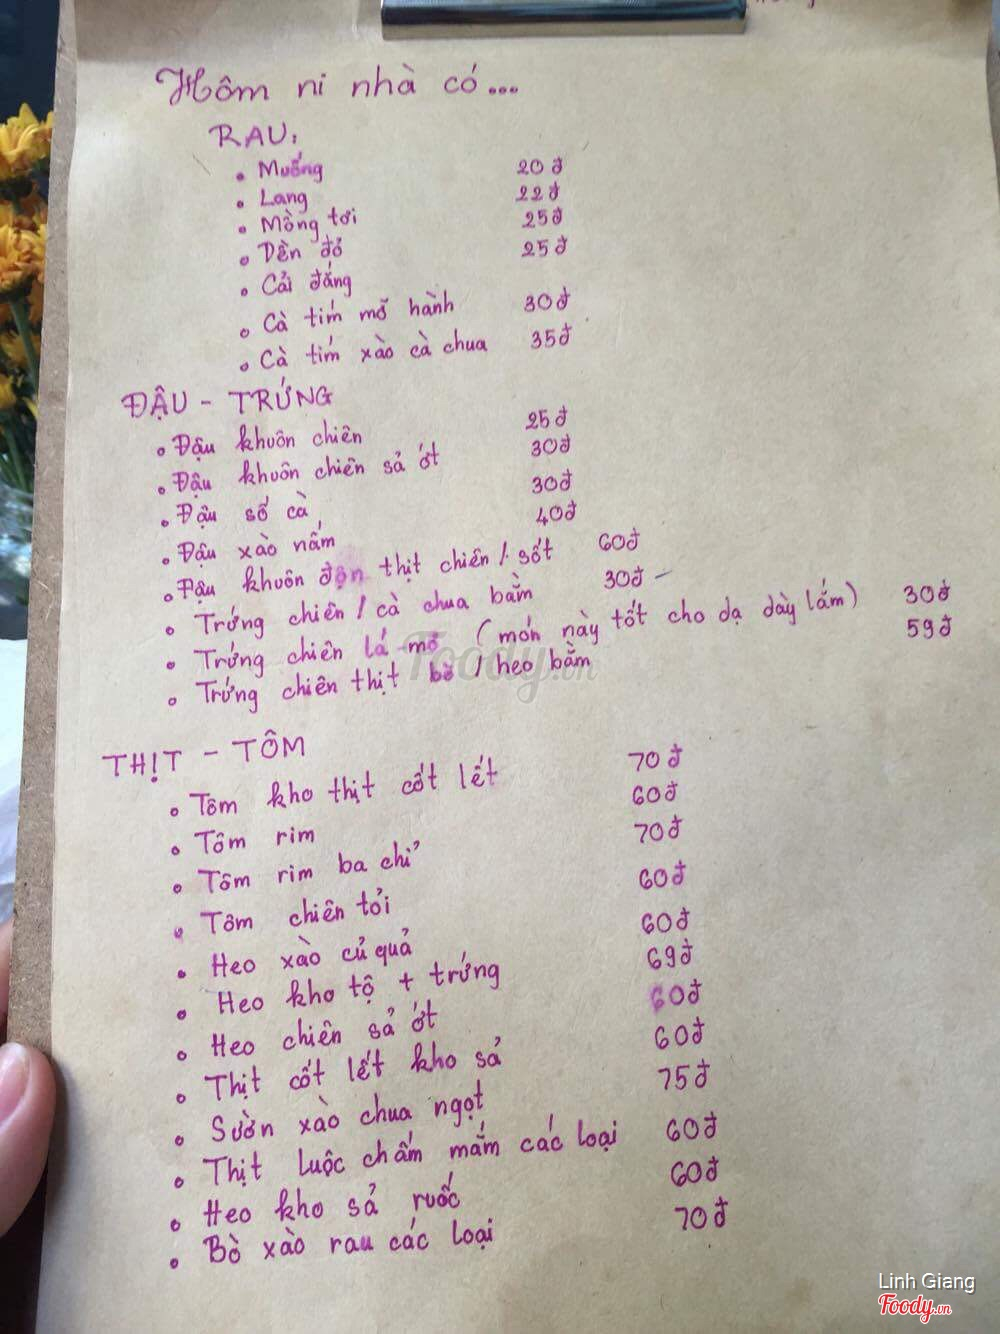 Hôm ni nhà có...
RAU:
• Muống 20đ
• Lang 22đ
• Mồng tơi 25đ
• Dền đỏ 25đ
• Cải đắng
• Cà tím mỡ hành 30đ
• Cà tím xào cà chua 35đ
ĐẬU - TRỨNG
• Đậu khuôn chiên 25đ
• Đậu khuôn chiên sả ớt 30đ
• Đậu số cà 30đ
• Đậu xào nấm 40đ
• Đậu khuôn độn thịt chiên / sốt 60đ
• Trứng chiên / cà chua bằm 30đ
• Trứng chiên lá mơ (món này tốt cho dạ dày lắm) 30đ
• Trứng chiên thịt bò / heo bằm 59đ
THỊT - TÔM
• Tôm kho thịt cốt lết 70đ
• Tôm rim 60đ
• Tôm rim ba chỉ 70đ
• Tôm chiên tỏi 60đ
• Heo xào củ quả 60đ
• Heo kho tộ + trứng 69đ
• Heo chiên sả ớt 60đ
• Thịt cốt lết kho sả 60đ
• Sườn xào chua ngọt 75đ
• Thịt luộc chấm mắm các loại 60đ
• Heo kho sả ruốc 60đ
• Bò xào rau các loại 70đ
Foody.vn
Linh Giang
Foody.vn